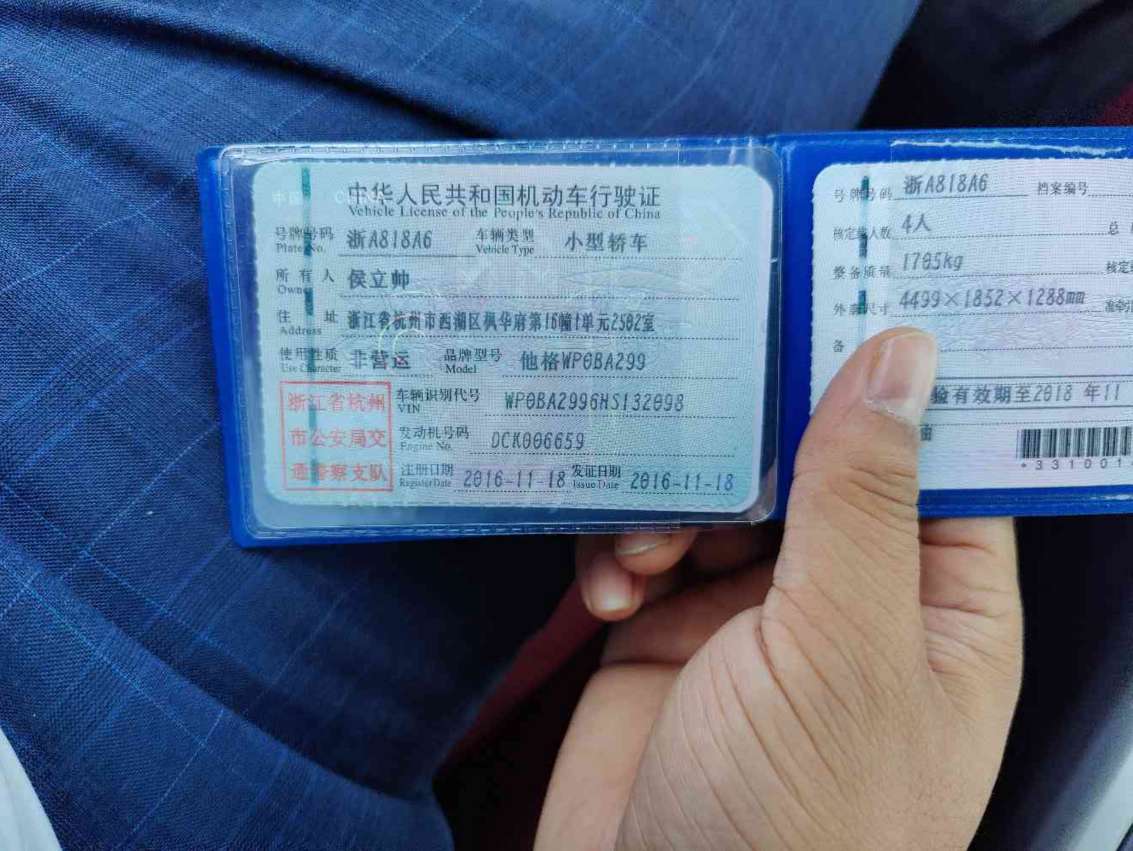 中华人民共和国机动车行驶证
Vehicle License of the People's Republic of China
号牌号码 浙A818A6 车辆类型 小型轿车
Plate No. Vehicle Type
所有人 侯立帅
Owner
住址 浙江省杭州市西湖区枫华府第16幢1单元2502室
Address
使用性质 非营运 品牌型号 他格WP0BA299
Use Character Model
浙江省杭州
市公安局交
通警察支队
车辆识别代号 WP0BA2996HS132098
VIN
发动机号码 DCK006659
Engine No.
注册日期 2016-11-18 发证日期 2016-11-18
Register Date Issue Date
号牌号码 浙A818A6 档案编号
核定载人数 4人 总
整备质量 1705kg 核定
外廓尺寸 4499×1852×1288mm 准牵引
备
验有效期至2018 年11
油
*331001